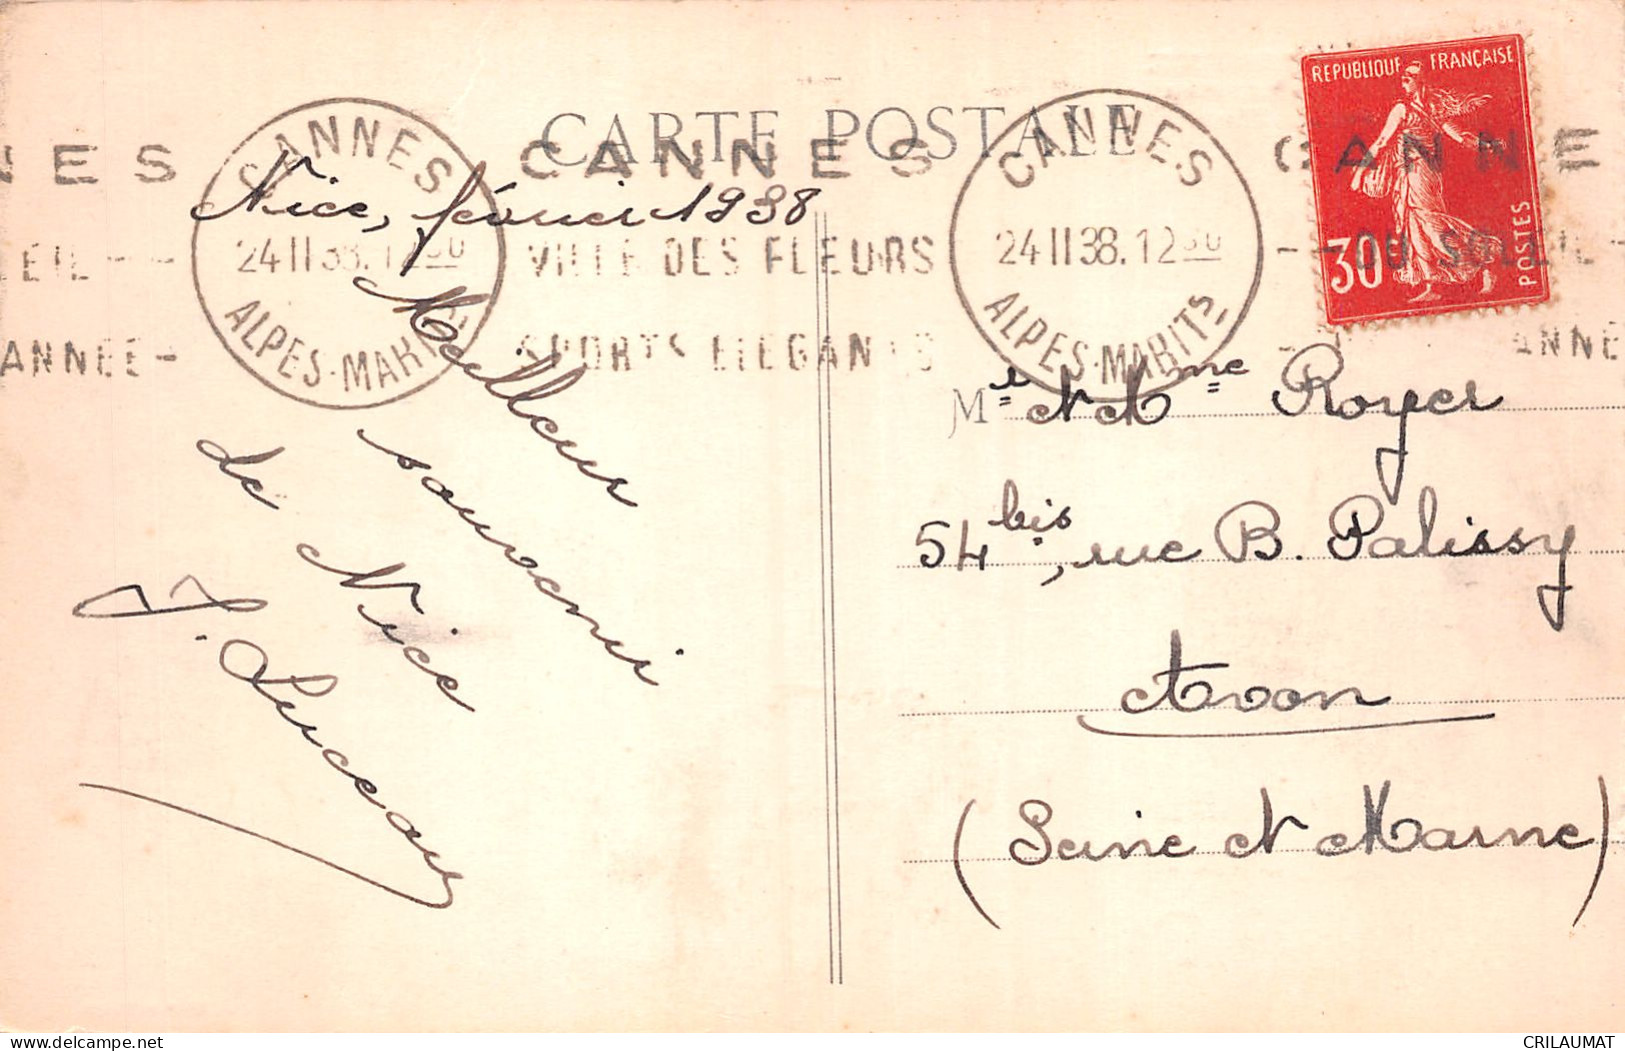 CARTE POSTALE
REPUBLIQUE FRANÇAISE
30
POSTES
NES
CANNES
CANNES
CANNES
CANNE
24 II 38. 12 30
VILLE DES FLEURS
24 II 38. 12 30
-- DU SOLEIL -
LEIL --
ALPES-MARITS
SPORTS ELEGANTS
ALPES-MARITS
ANNE
ANNEE -
Nice, février 1938
Meilleur
souvenir
de Nice
Mr et Mme Royer
54 bis, rue B. Palissy
Avon
(Seine et Marne)
CRILAUMAT